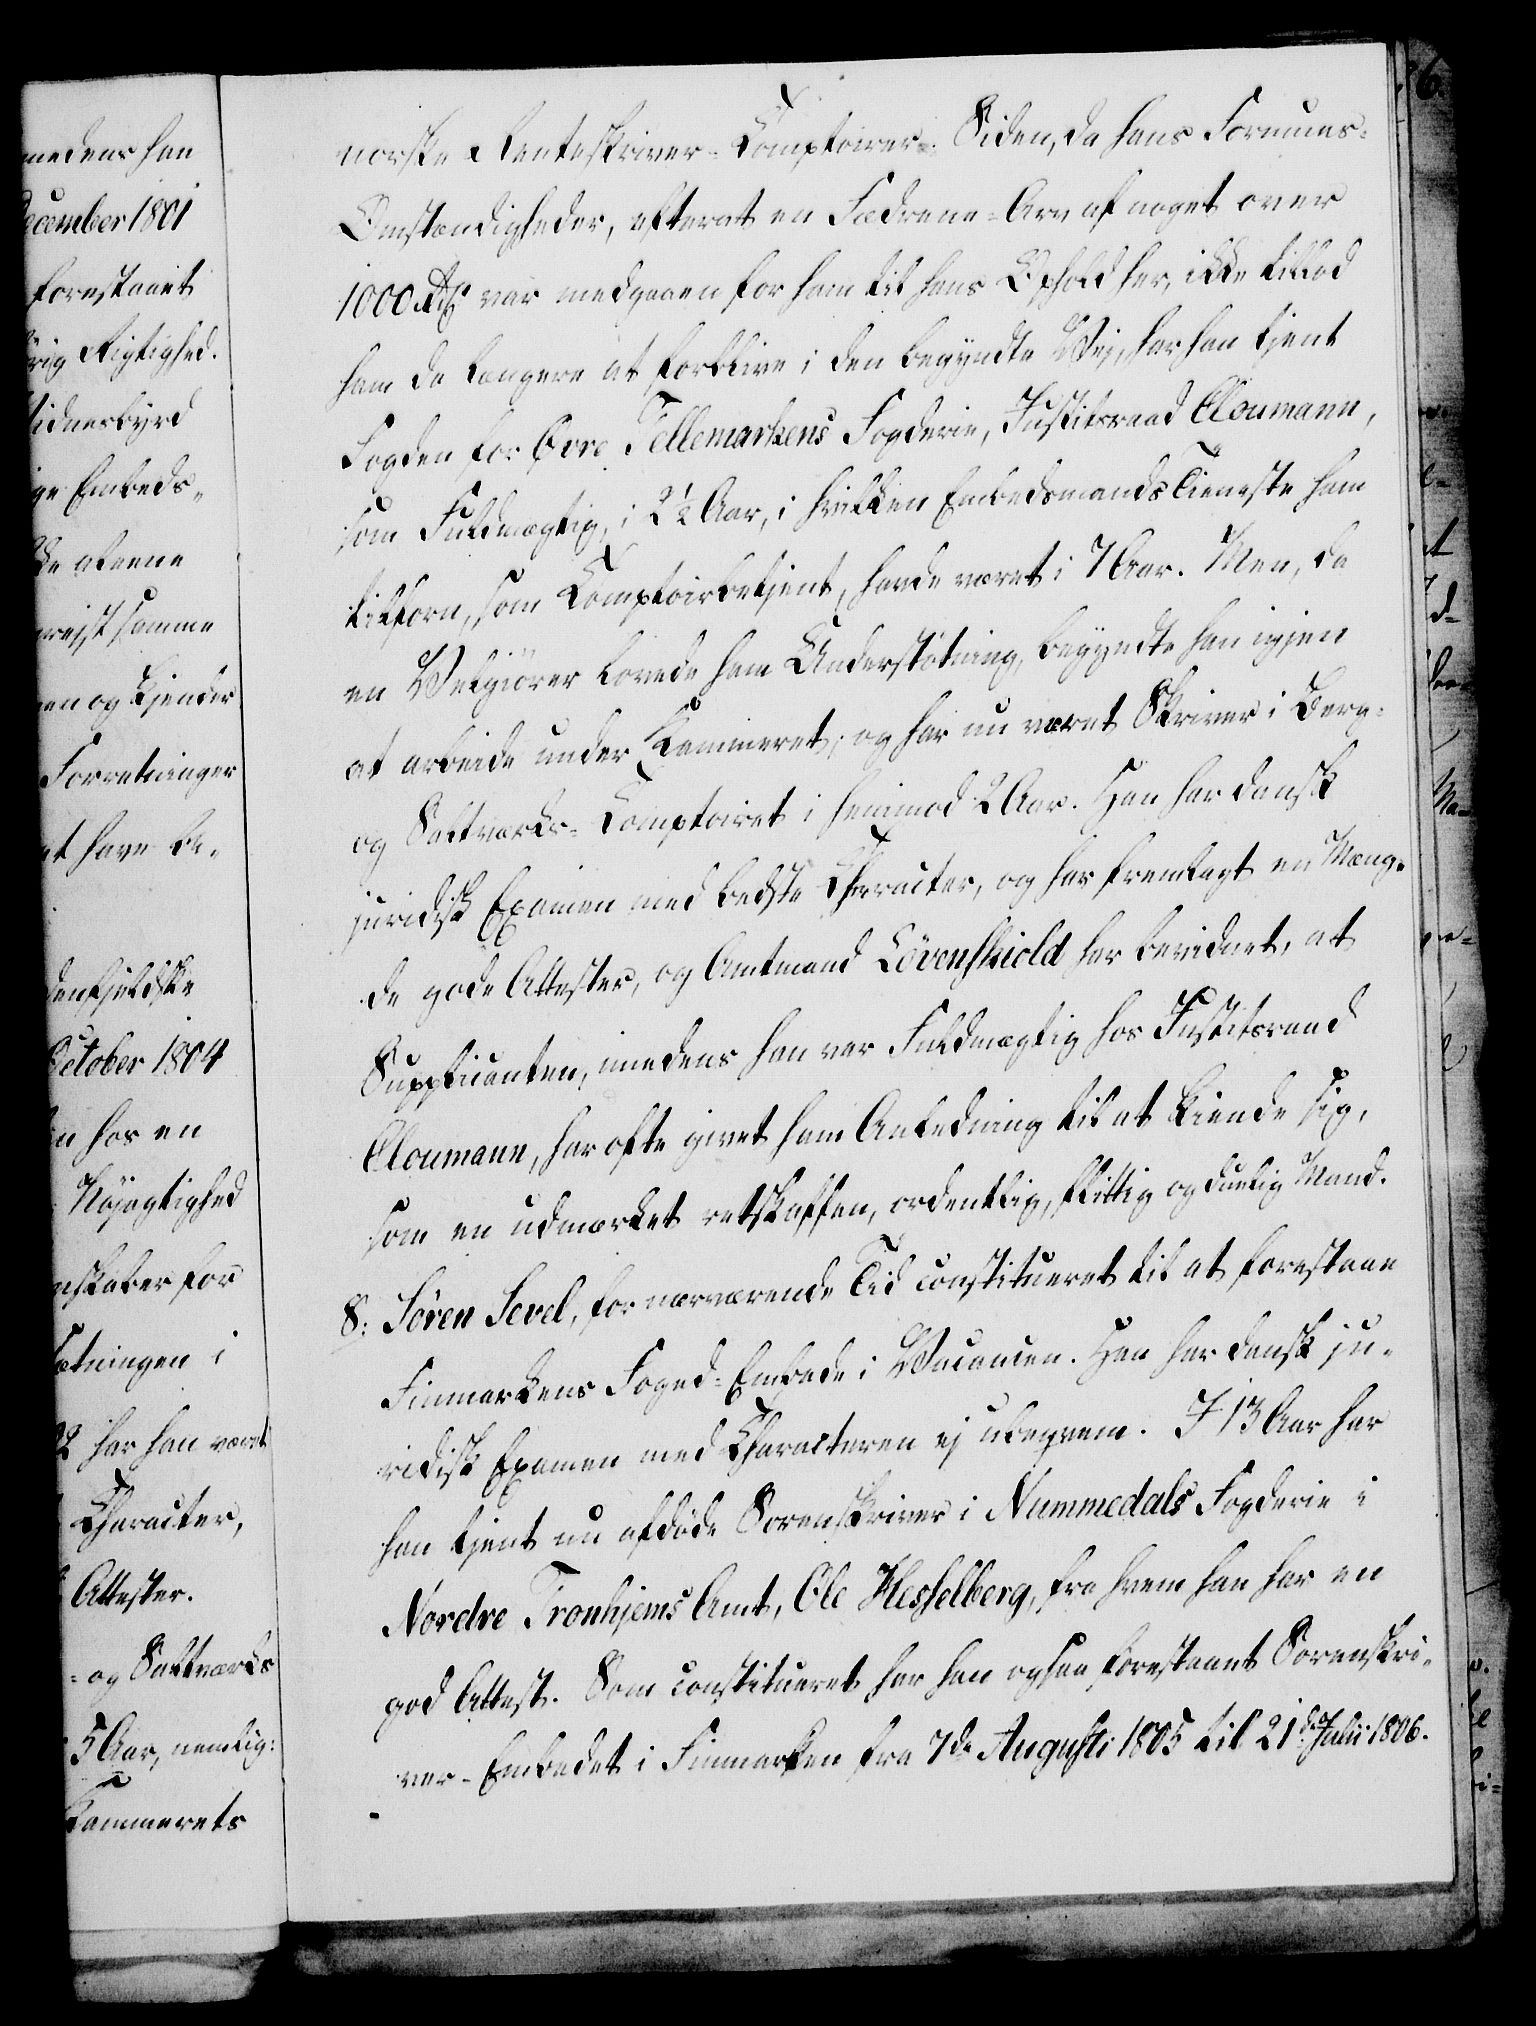 medens han
December 1801
forestaaet
rig Rigtighed.
Vidnesbyrd
ge Embeds-
samme
en og kjender
Forretninger
at have be-
denfjeldske
October 1804
hos en
Nøjagtighed
nskaber for
sætningen i
har han været
Character,
Attester.
- og Saltværks
5 Aar, nemlig:
Kammerets
norske Renteskriver-Comptoirer. Siden, da hans Formues-
Omstændigheder, efterat en Fædrene-Arv af noget over
1000 Rd var medgaaen for ham til hans Ophold her, ikke tillod
ham da længere at forblive i den begyndte Vej, har han tjent
Fogden for Øvre Tellemarkens Fogderie, Justitsraad Cloumann,
som Fuldmægtig, i 2½ Aar, i hvilken Embedsmands Tieneste han
tilforn, som Comptoirbetjent, havde været i 7 Aar. Men, da
en Velgiörer lovede ham Understötning, begyndte han igjen
at arbeide under Kammeret; og har nu været Skriver i Berg-
og Saltværks-Comptoiret i henimod 2 Aar. Han har dansk
juridisk Examen med bedste Character, og har fremlagt en Mæng-
de gode Attester, og Amtmand Lövenskiold har bevidnet, at
Supplicanten, imedens han var Fuldmægtig hos Justitsraad
Cloumann, har ofte givet ham Anledning til at kiende sig,
som en udmærket retskaffen, ordentlig, flittig og duelig Mand.
8: Sören Sevel, for nærværende Tid constitueret til at forestaae
Finmarkens Foged-Embede i Vacancen. Han har dansk ju-
ridisk Examen med Characteren ej ubeqvem. I 13 Aar har
han tjent nu afdöde Sorenskriver i Nummedals Fogderie i
Nordre Tronhjems Amt, Ole Hesselberg, fra hvem han har en
god Attest. Som constitueret har han ogsaa forestaaet Sorenskri-
ver-Embedet i Finmarken fra 7de Augusti 1805 til 21de Julii 1806.